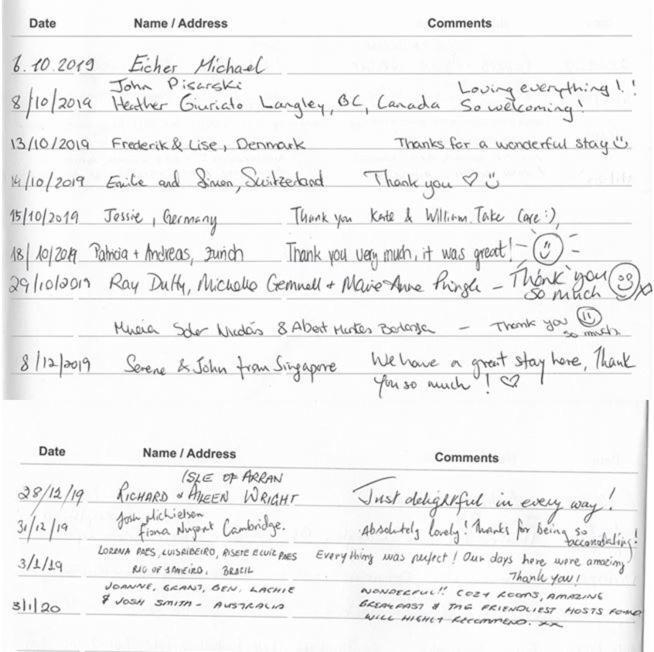 Date Name / Address Comments
6.10.2019 Eicher Michael
John Pisarski Loving everything!!
8/10/2019 Heather Giuriato Langley, BC, Canada So welcoming!
13/10/2019 Frederik & Lise, Denmark Thanks for a wonderful stay
14/10/2019 Emilie and Simon, Switzerland Thank you ♡
15/10/2019 Jessie, Germany Thank you Kate & William. Take Care :)
18/10/2019 Patricia + Andreas, Zurich Thank you very much, it was great!
29/10/2019 Ray Duffy, Michelle Gemmell + Marie Anne Pringle - Thank you
so much
& Albert - Thank you
so much
8/12/2019 Serene & John from Singapore We have a great stay here, Thank
you so much! ♡
Date Name / Address Comments
ISLE OF ARRAN
28/12/19 RICHARD & AILEEN WRIGHT Just delightful in every way!
31/12/19 Josh Michielson
Fiona Nugent Cambridge. Absolutely lovely! Thanks for being so
accomodating!
3/1/19 LORENA PAES, LUIS RIBEIRO, Everything was perfect! Our days here were amazing
RIO DE JANEIRO, BRAZIL Thank you!
JOANNE, GRANT, BEN, LACHIE WONDERFUL!! COZY ROOMS, AMAZING
3/1/20 & JOSH SMITH - AUSTRALIA BREAKFAST & THE FRIENDLIEST HOSTS FOUND
WILL HIGHLY RECOMMEND. XX